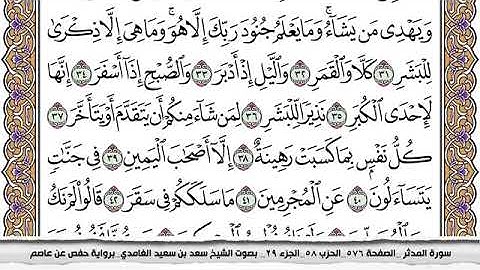 وَيَهْدِى مَن يَشَآءُ ۚ وَمَا يَعْلَمُ جُنُودَ رَبِّكَ إِلَّا هُوَ ۚ وَمَا هِىَ إِلَّا ذِكْرَىٰ
لِلْبَشَرِ ٣١ كَلَّا وَٱلْقَمَرِ ٣٢ وَٱلَّيْلِ إِذْ أَدْبَرَ ٣٣ وَٱلصُّبْحِ إِذَآ أَسْفَرَ ٣٤ إِنَّهَا
لَإِحْدَى ٱلْكُبَرِ ٣٥ نَذِيرًا لِّلْبَشَرِ ٣٦ لِمَن شَآءَ مِنكُمْ أَن يَتَقَدَّمَ أَوْ يَتَأَخَّرَ ٣٧
كُلُّ نَفْسٍۭ بِمَا كَسَبَتْ رَهِينَةٌ ٣٨ إِلَّآ أَصْحَـٰبَ ٱلْيَمِينِ ٣٩ فِى جَنَّـٰتٍ
يَتَسَآءَلُونَ ٤٠ عَنِ ٱلْمُجْرِمِينَ ٤١ مَا سَلَكَكُمْ فِى سَقَرَ ٤٢ قَالُوا۟ لَمْ نَكُ
سورة المدثر _الصفحة ٥٧٦_الحزب ٥٨_الجزء ٢٩_ بصوت الشيخ سعد بن سعيد الغامدي_برواية حفص عن عاصم